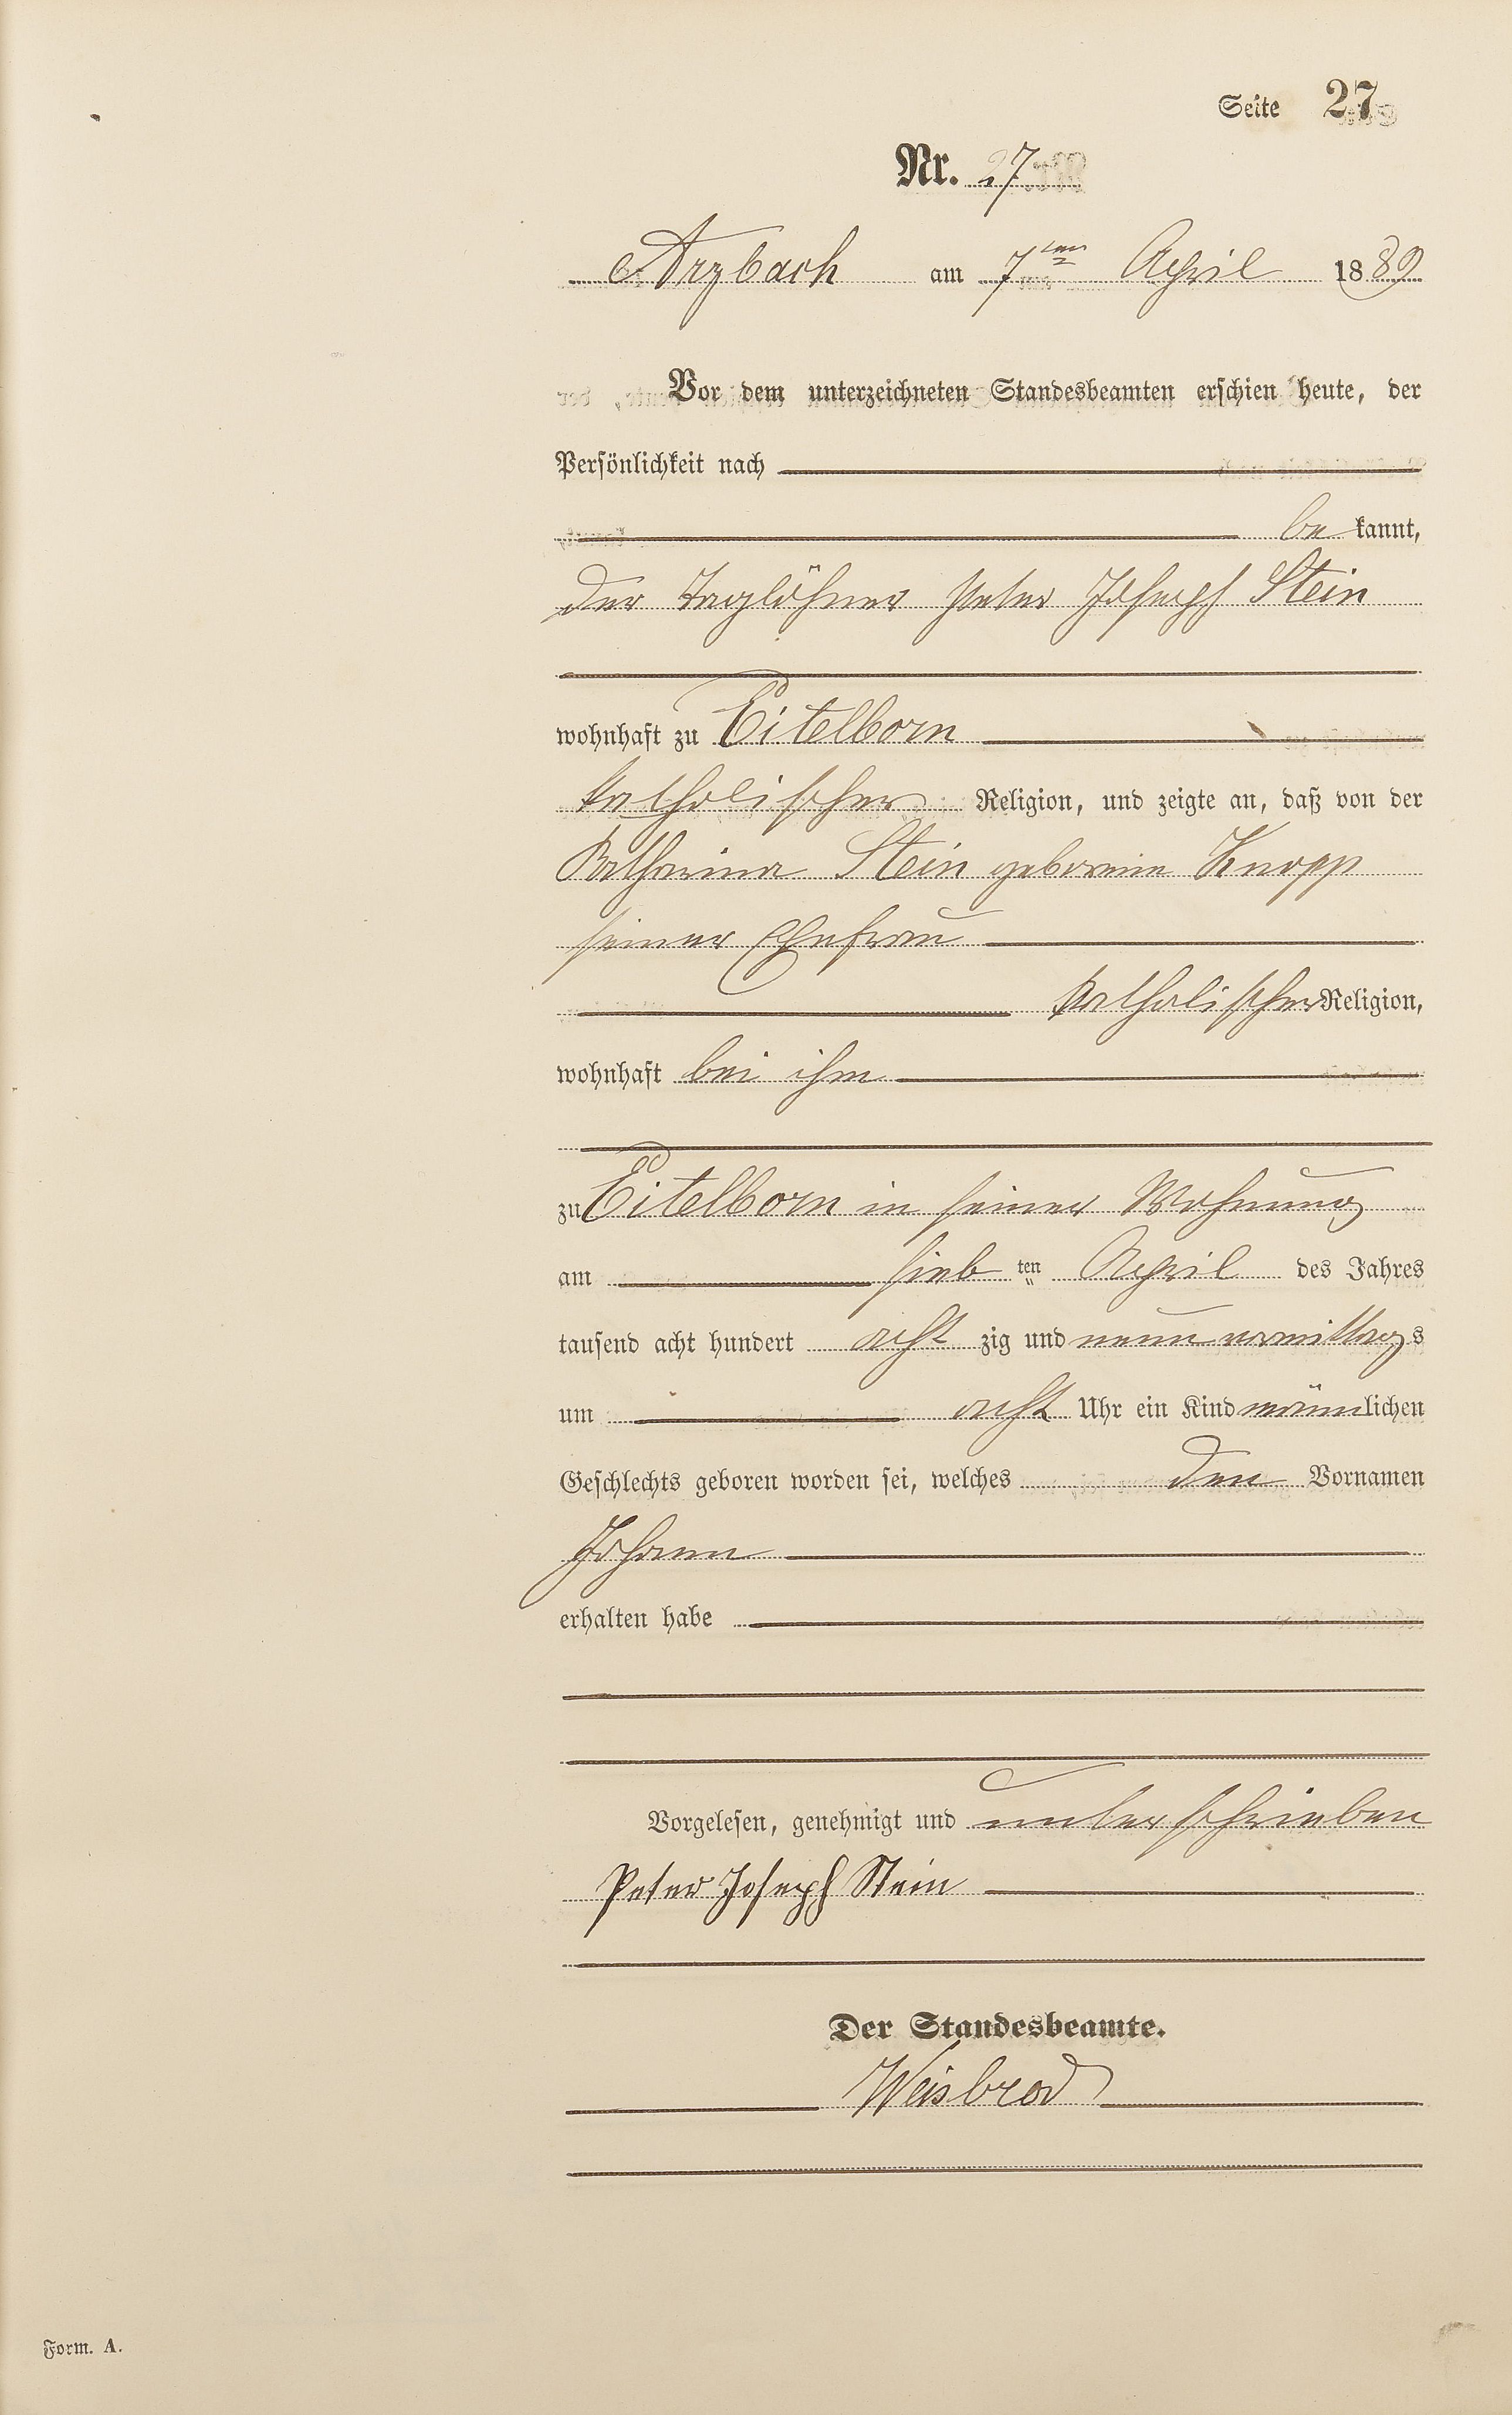 Seite 27
Nr. 27
Arzbach am 7ten April 1889
Vor dem unterzeichneten Standesbeamten erschien heute, der
Persönlichkeit nach
be kannt,
der Taglöhner Peter Joseph Stein
wohnhaft zu Eitelborn
katholischer Religion, und zeigte an, daß von der
Katharina Stein geborenen Knopp
seiner Ehefrau
katholischer Religion,
wohnhaft bei ihm
zu Eitelborn in seiner Wohnung
am sieb ten April des Jahres
tausend acht hundert acht zig und neun vormittags
um acht Uhr ein Kind männlichen
Geschlechts geboren worden sei, welches den Vornamen
Johann
erhalten habe
Vorgelesen, genehmigt und unterschrieben
Peter Joseph Stein
Der Standesbeamte.
Weisbrod
Form. A.